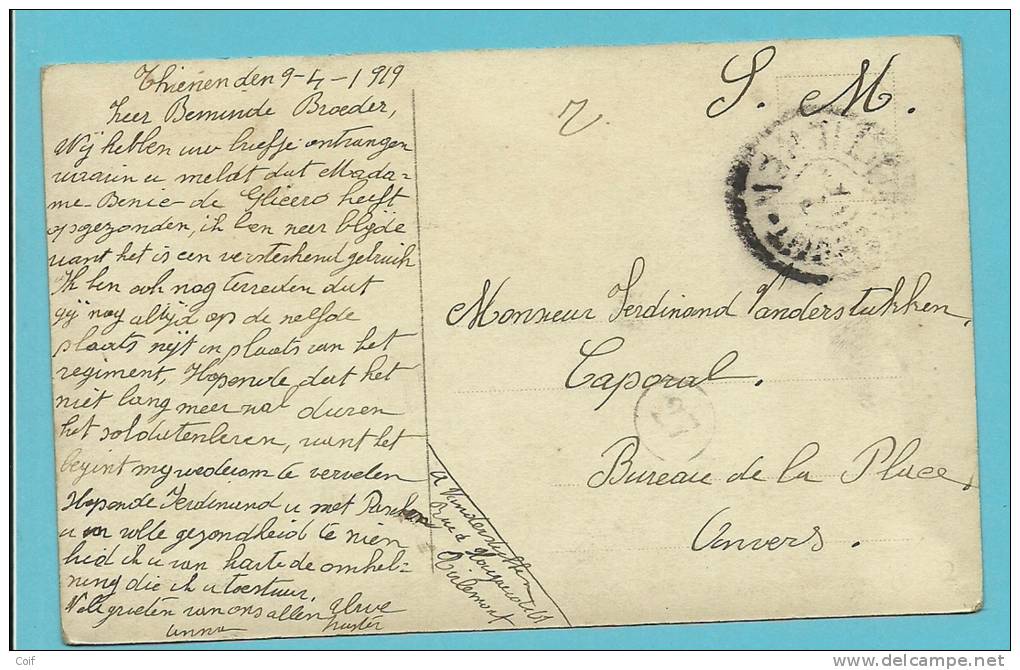 Thienen den 9-4-1919
Zeer Beminde Broeder,
Wij hebben uw briefje ontvangen
waarin u meldt dat Mada-
me Benie de Glicero heeft
opgezonden, ik ben zeer blijde
want het is een versterkend gebruik
Ik ben ook nog tevreden dat
gij nog altijd op de zelfde
plaats zijt in plaats van het
regiment, Hopende dat het
niet lang meer zal duren
het soldatenleven, want het
begint mij wederom te vervelen
Hopende Ferdinand u met Paschen
in volle gezondheid te zien
heb ik u van harte de omhel-
zing die ik u toestuur,
Vele groeten van ons allen Uwe
anna zuster
A Vanderstukken
Rue
Tirlemont
2.
S. M.
Monsieur Ferdinand Vanderstukken,
Caporal.
27
Bureau de la Place,
Anvers.
Coif
delcampe.net